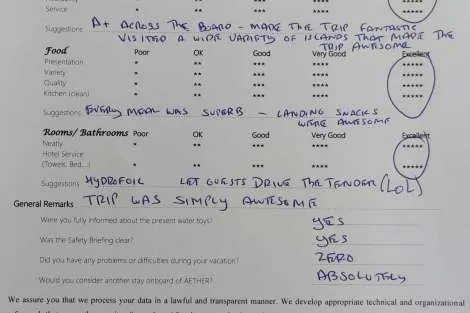 Service * ** *** **** *****
Suggestions A+ ACROSS THE BOARD - MADE THE TRIP FANTASTIC
VISITED A WIDE VARIETY OF ISLANDS THAT MADE THE
TRIP AWESOME
Food Poor OK Good Very Good Excellent
Presentation * ** *** **** *****
Variety * ** *** **** *****
Quality * ** *** **** *****
Kitchen (clean) * ** *** **** *****
Suggestions EVERY MEAL WAS SUPERB - LANDING SNACKS
WERE AWESOME
Rooms/ Bathrooms Poor OK Good Very Good Excellent
Neatly * ** *** **** *****
Hotel Service
(Towels, Bed,...) * ** *** **** *****
Suggestions HYDROFOIL LET GUESTS DRIVE THE TENDER (LOL)
General Remarks TRIP WAS SIMPLY AWESOME
Were you fully informed about the present water toys? YES
Was the Safety Briefing clear? YES
Did you have any problems or difficulties during your vacation? ZERO
Would you consider another stay onboard of AETHER? ABSOLUTELY
We assure you that we process your data in a lawful and transparent manner. We develop appropriate technical and organizational